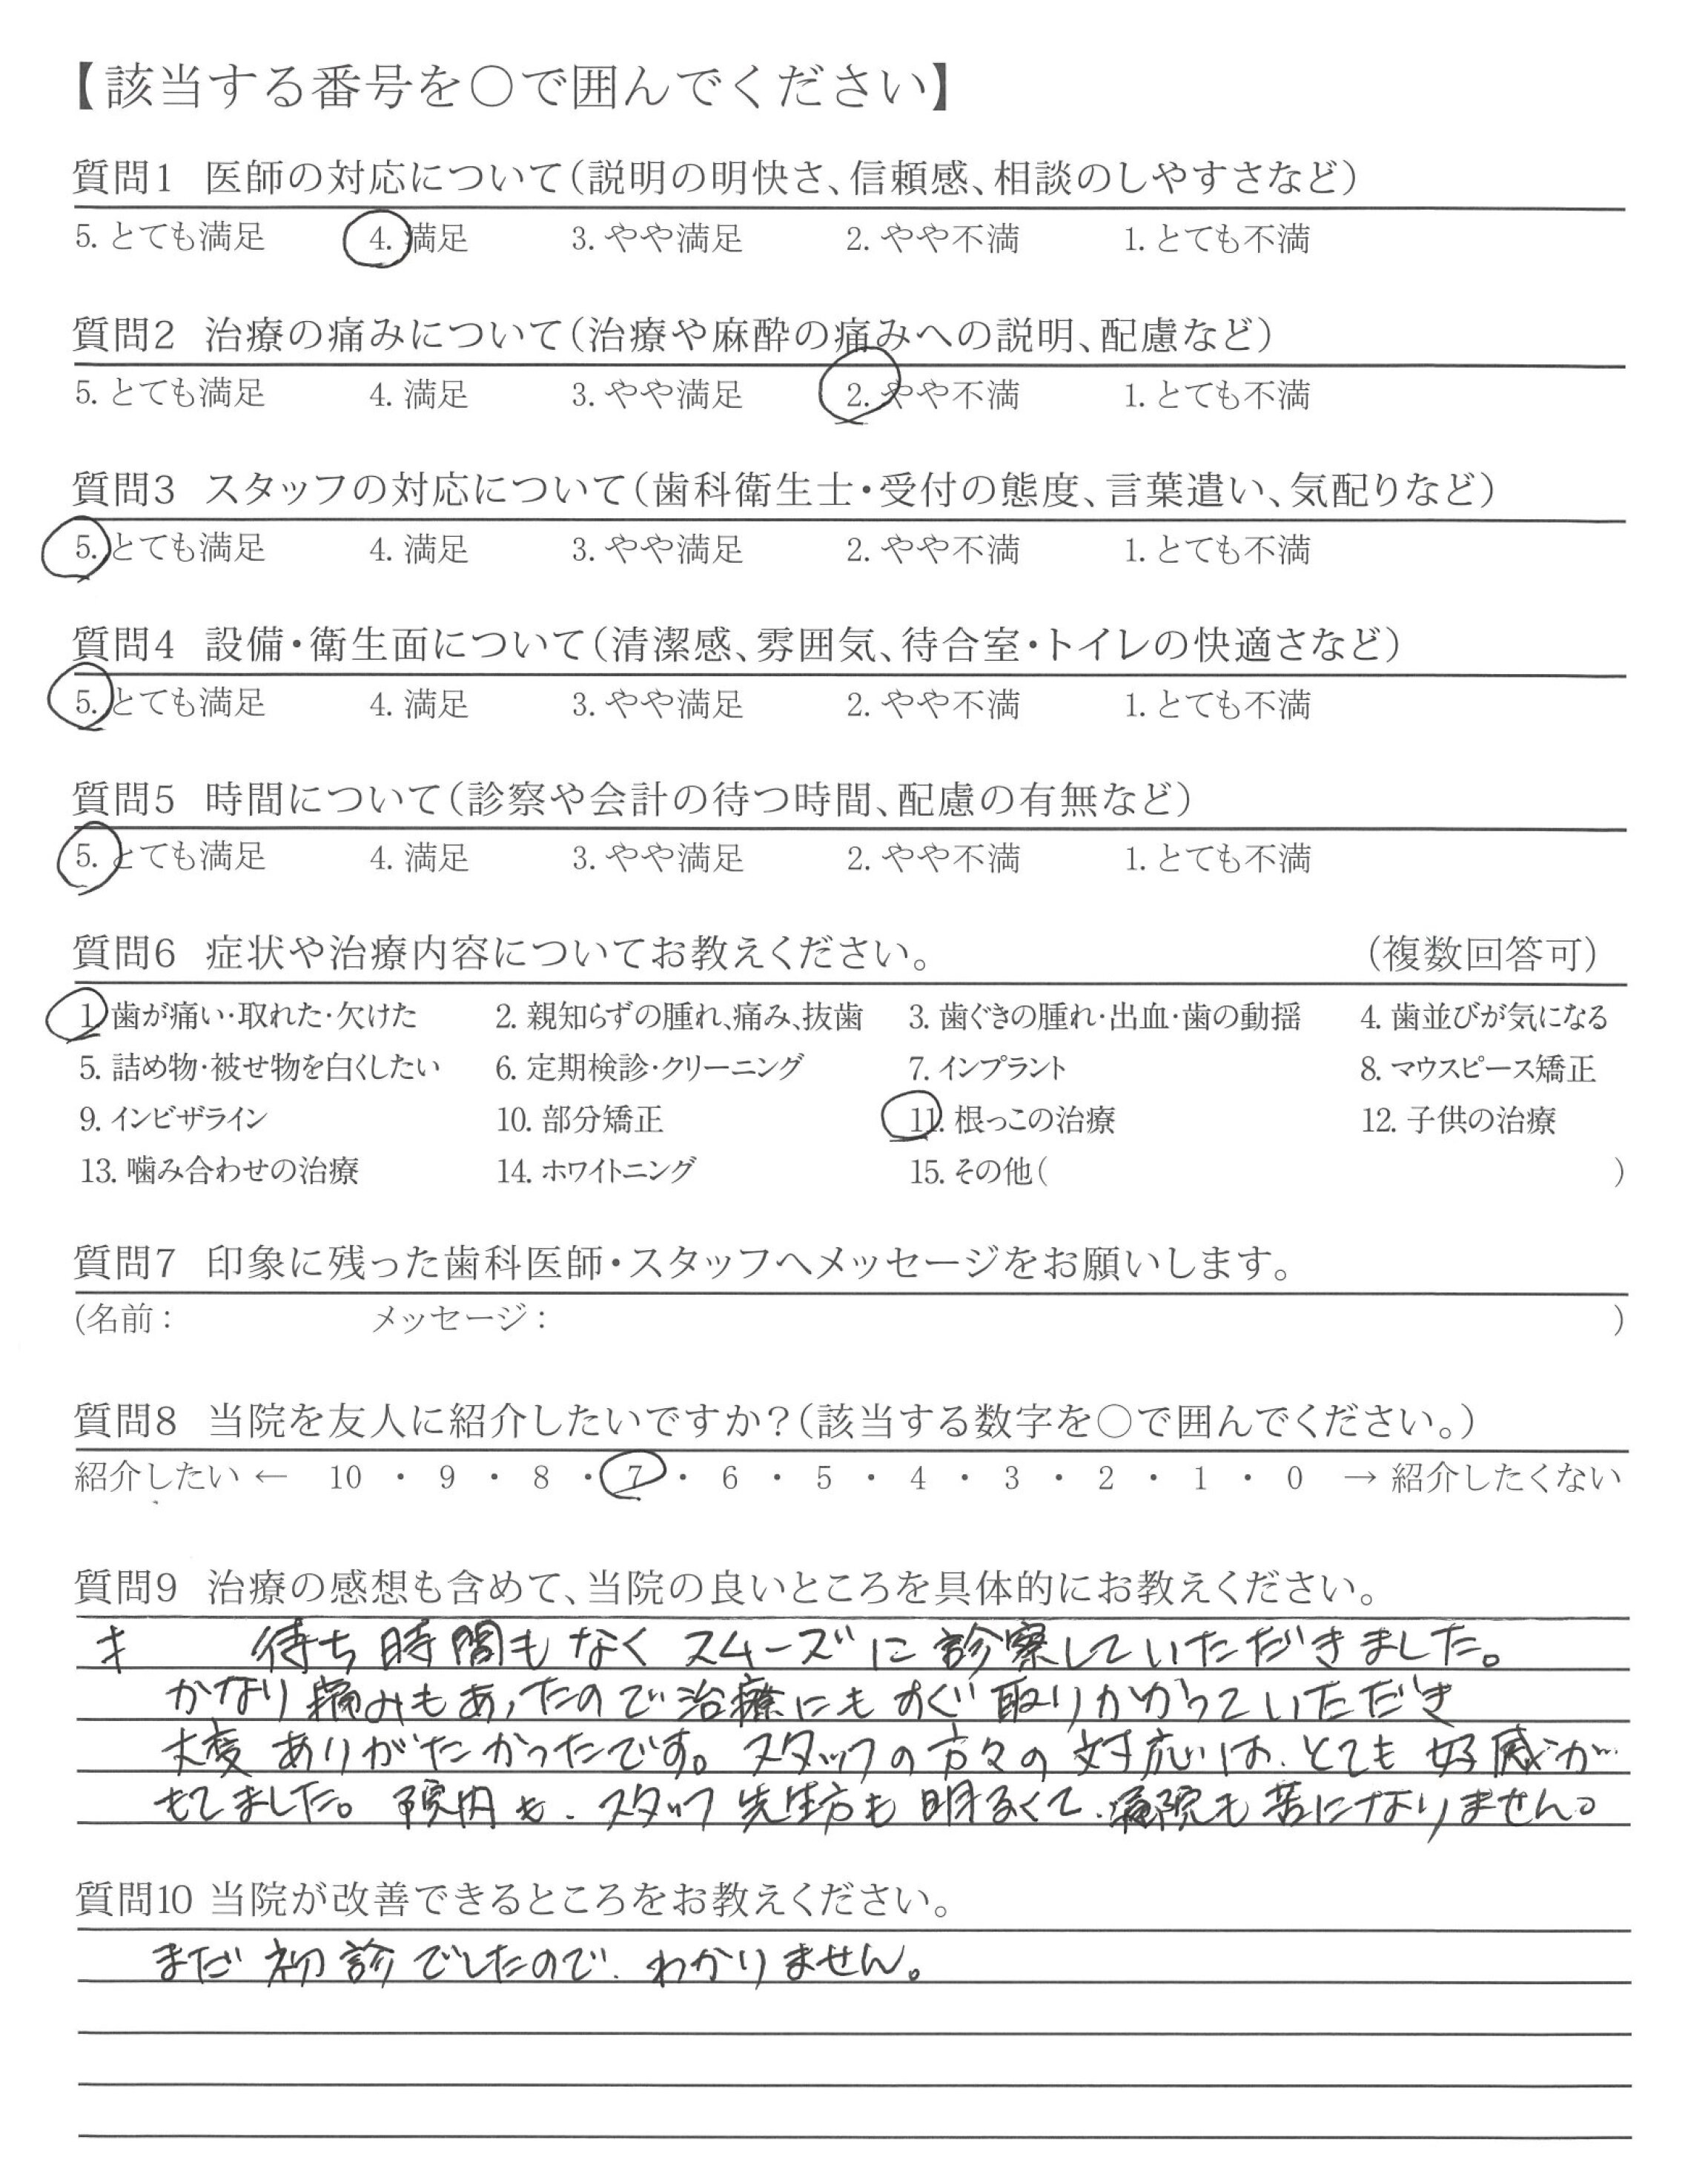 【該当する番号を〇で囲んでください】
質問1 医師の対応について(説明の明快さ、信頼感、相談のしやすさなど)
5. とても満足 4. 満足 3. やや満足 2. やや不満 1. とても不満
質問2 治療の痛みについて(治療や麻酔の痛みへの説明、配慮など)
5. とても満足 4. 満足 3. やや満足 2. やや不満 1. とても不満
質問3 スタッフの対応について(歯科衛生士・受付の態度、言葉遣い、気配りなど)
5. とても満足 4. 満足 3. やや満足 2. やや不満 1. とても不満
質問4 設備・衛生面について(清潔感、雰囲気、待合室・トイレの快適さなど)
5. とても満足 4. 満足 3. やや満足 2. やや不満 1. とても不満
質問5 時間について(診察や会計の待つ時間、配慮の有無など)
5. とても満足 4. 満足 3. やや満足 2. やや不満 1. とても不満
質問6 症状や治療内容についてお教えください。 (複数回答可)
1. 歯が痛い・取れた・欠けた 2. 親知らずの腫れ、痛み、抜歯 3. 歯ぐきの腫れ・出血・歯の動揺 4. 歯並びが気になる
5. 詰め物・被せ物を白くしたい 6. 定期検診・クリーニング 7. インプラント 8. マウスピース矯正
9. インビザライン 10. 部分矯正 11. 根っこの治療 12. 子供の治療
13. 噛み合わせの治療 14. ホワイトニング 15. その他( )
質問7 印象に残った歯科医師・スタッフへメッセージをお願いします。
(名前: メッセージ: )
質問8 当院を友人に紹介したいですか?(該当する数字を〇で囲んでください。)
紹介したい ← 10 ・ 9 ・ 8 ・ 7 ・ 6 ・ 5 ・ 4 ・ 3 ・ 2 ・ 1 ・ 0 → 紹介したくない
質問9 治療の感想も含めて、当院の良いところを具体的にお教えください。
待ち時間もなくスムーズに診察していただきました。
かなり痛みもあったので治療にもすぐ取りかかっていただき
大変ありがたかったです。スタッフの方々の対応は、とても好感が
もてました。院内も、スタッフ先生方も明るくて、通院も苦になりません。
質問10 当院が改善できるところをお教えください。
まだ初診でしたので、わかりません。